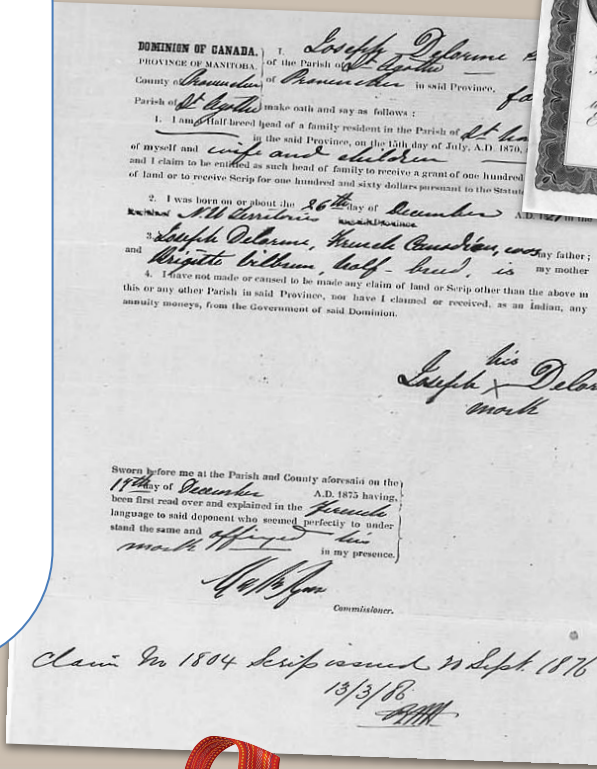 DOMINION OF CANADA, I, Joseph Delorme
PROVINCE OF MANITOBA, of the Parish of St Agathe
County of Provencher of Provencher in said Province,
Parish of St Agathe make oath and say as follows :
1. I am a Half-breed head of a family resident in the Parish of St
in the said Province, on the 15th day of July, A.D. 1870,
of myself and wife and children
and I claim to be entitled as such head of family to receive a grant of one hundred
of land or to receive Scrip for one hundred and sixty dollars pursuant to the Statute
2. I was born on or about the 26th day of December A.D. in the
N W Territories
3. Joseph Delorme, French Canadian, was my father ;
and Brigitte Vilbrun, half-breed, is my mother
4. I have not made or caused to be made any claim of land or Scrip other than the above in
this or any other Parish in said Province, nor have I claimed or received, as an Indian, any
annuity moneys, from the Government of said Dominion.
his
Joseph X Delor
mark
Sworn before me at the Parish and County aforesaid on the
17th day of December A.D. 1875 having,
been first read over and explained in the French
language to said deponent who seemed perfectly to under
stand the same and affixed his
mark in my presence.
Commissioner.
Claim No 1804 Scrip issued 20 Sept. 1876
13/3/86